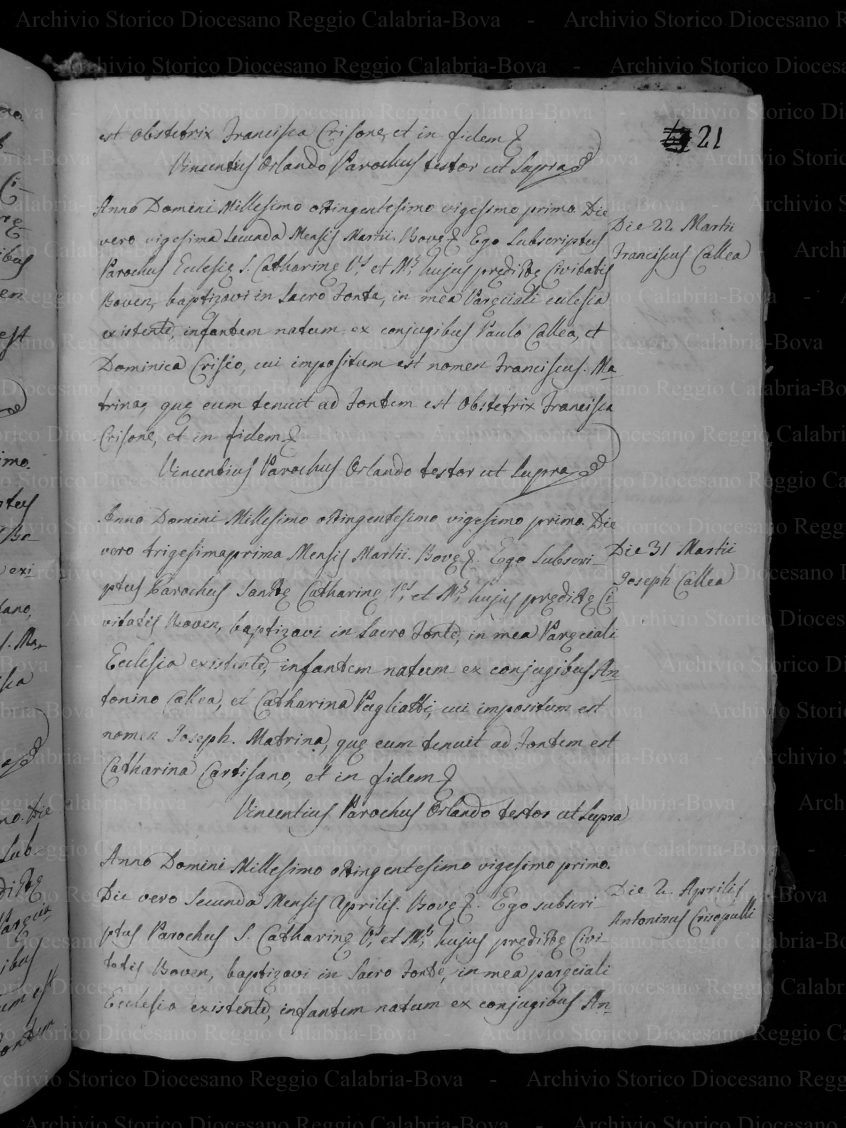 21
est Obstetrix Francisca Crisone, et in fidem &
Vincentius Orlando Parochus testor ut Supra
Anno Domini Millesimo octingentesimo vigesimo primo. Die
vero vigesima secunda Mensis Martii. Bovę &. Ego Subscriptus
Parochus Ecclesię S. Catharinę V.s et M.s hujus prędictę Civitatis
Boven, baptizavi in Sacro Fonte, in mea Paręciali eclesia
existente, infantem natum ex conjugibus Paulo Callea, et
Dominica Criseo, cui impositum est nomen Franciscus. Ma-
trina, quę eum tenuit ad Fontem est Obstetrix Francisca
Crisone, et in fidem &
Vincentius Parochus Orlando testor ut Supra
Die 22 Martii
Franciscus Callea
Anno Domini Millesimo octingentesimo vigesimo primo. Die
vero trigesimaprima Mensis Martii. Bovę &. Ego Subscri-
ptus Parochus Sanctę Catharinę V.s, et M.s, hujus prędictę Ci-
vitatis Boven, baptizavi in Sacro Fonte, in mea Paręciali
Ecclesia existente, infantem natum ex conjugibus An-
tonino Callea, et Catharina Pugliatti, cui impositum est
nomen Joseph. Matrina, quę eum tenuit ad Fontem est
Catharina Cartisano, et in fidem &
Vincentius Parochus Orlando testor ut Supra
Die 31 Martii
Joseph Callea
Anno Domini Millesimo octingentesimo vigesimo primo.
Die vero Secunda Mensis Aprilis. Bovę &. Ego subscri-
ptus Parochus S. Catharinę V.s et M.s hujus prędictę Civi-
tatis Boven, baptizavi in Sacro Fonte, in mea paręciali
Ecclesia existente, infantem natum ex conjugibus An-
Die 2. Aprilis
Antoninus Crupulli
Archivio Storico Diocesano Reggio Calabria-Bova